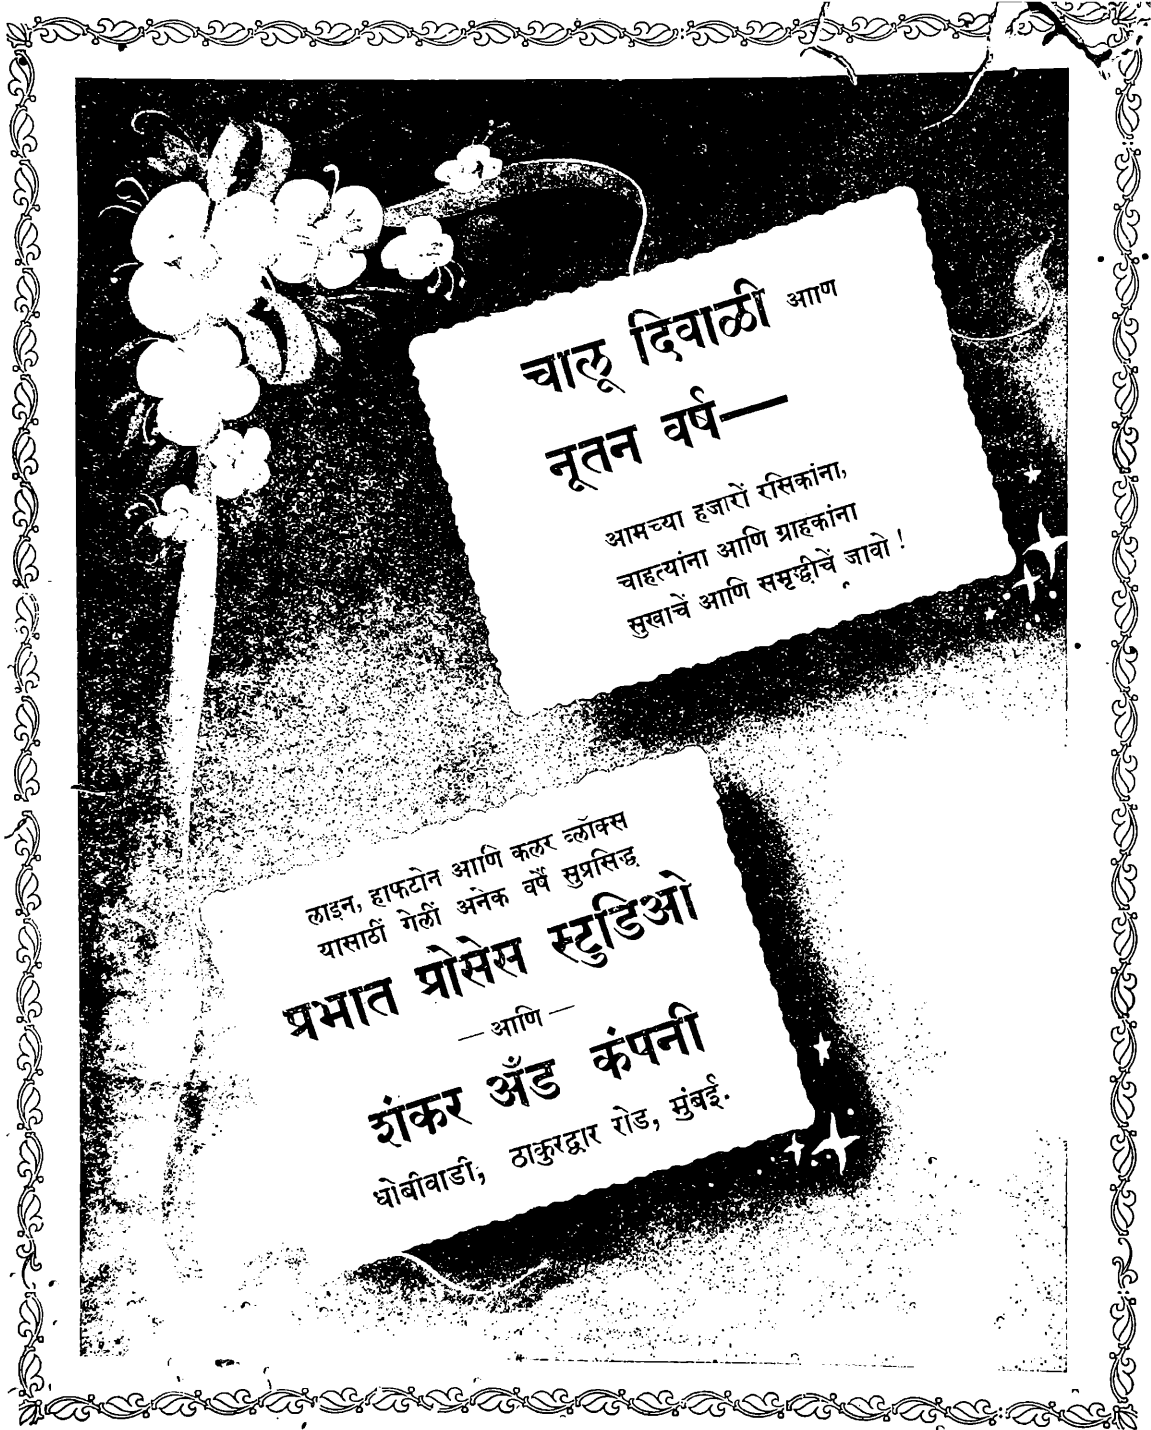 चालू दिवाळी आणि
नूतन वर्ष—
आमच्या हजारों रसिकांना,
चाहत्यांना आणि ग्राहकांना
सुखाचें आणि समृद्धीचें जावो !
लाइन, हाफटोन आणि कलर ब्लॉक्स
यासाठीं गेलीं अनेक वर्षें सुप्रसिद्ध
प्रभात प्रोसेस स्टुडिओ
— आणि —
शंकर अँड कंपनी
धोबीवाडी, ठाकुरद्वार रोड, मुंबई.